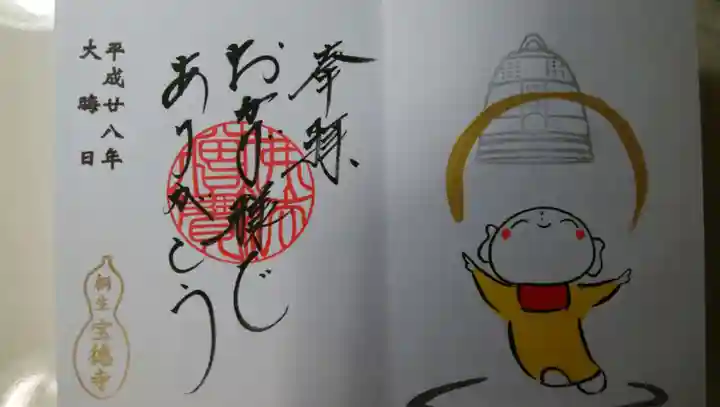 奉拝
おかげ様で
ありがとう
平成廿八年
大晦日
桐生
宝徳寺